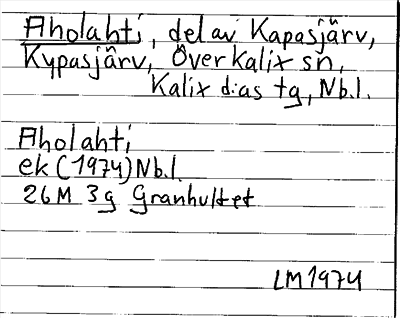 Aholahti, del av Kapasjärv,
Kypasjärv, Överkalix sn,
Kalix d:as tg, Nb.l.
Aholahti
ek (1974) Nb.l.
26M 3g Granhultet
LM 1974